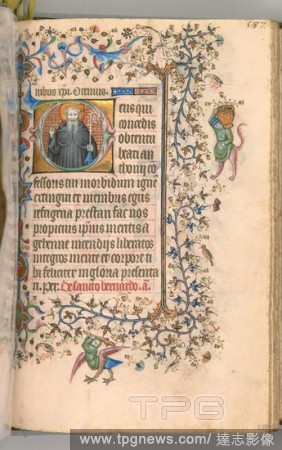 nibus xpi. Oremus.
eus qui
concedis
obtentu
beati an
thonij co
fessoris tui morbidum igne
extingui et membris egris
refrigeria prestari fac nos
propicius ipius meritis a
gehenne incendijs liberatos
integros mente et corpore ti
bi feliciter in gloria presenta
ri. per. De sancto bernardo. a.
TPG
www.tpgnews.com/ 達志影像